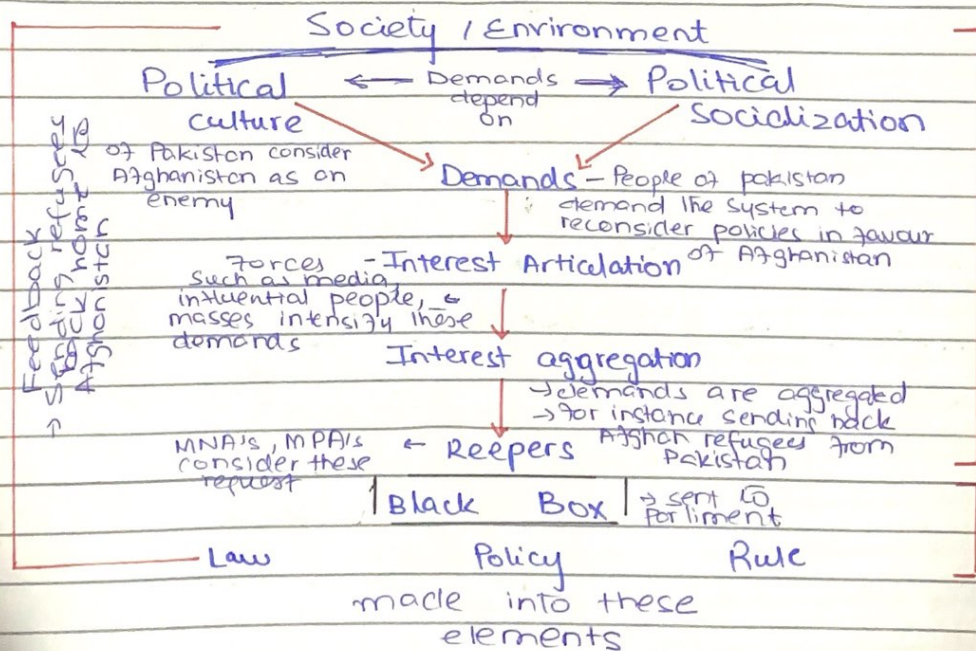 Society / Environment
Political ← Demands → Political
depend
on
culture
Socialization
of Pakistan consider
Afghanistan as an
enemy
Demands - People of pakistan
demand the system to
reconsider policies in favour
of Afghanistan
forces - Interest Articelation
such as media,
influential people, ←
masses intensify these
demands
Interest aggregation
→ demands are aggregated
→ for instance sending back
Afghan refugees from
Pakistan
MNA's, MPA's ← Reepers
consider these
request
Black Box → sent to
Parliment
Law Policy Rule
made into these
elements
Feedback
→ Sending refugees
back home to
Afghanistan